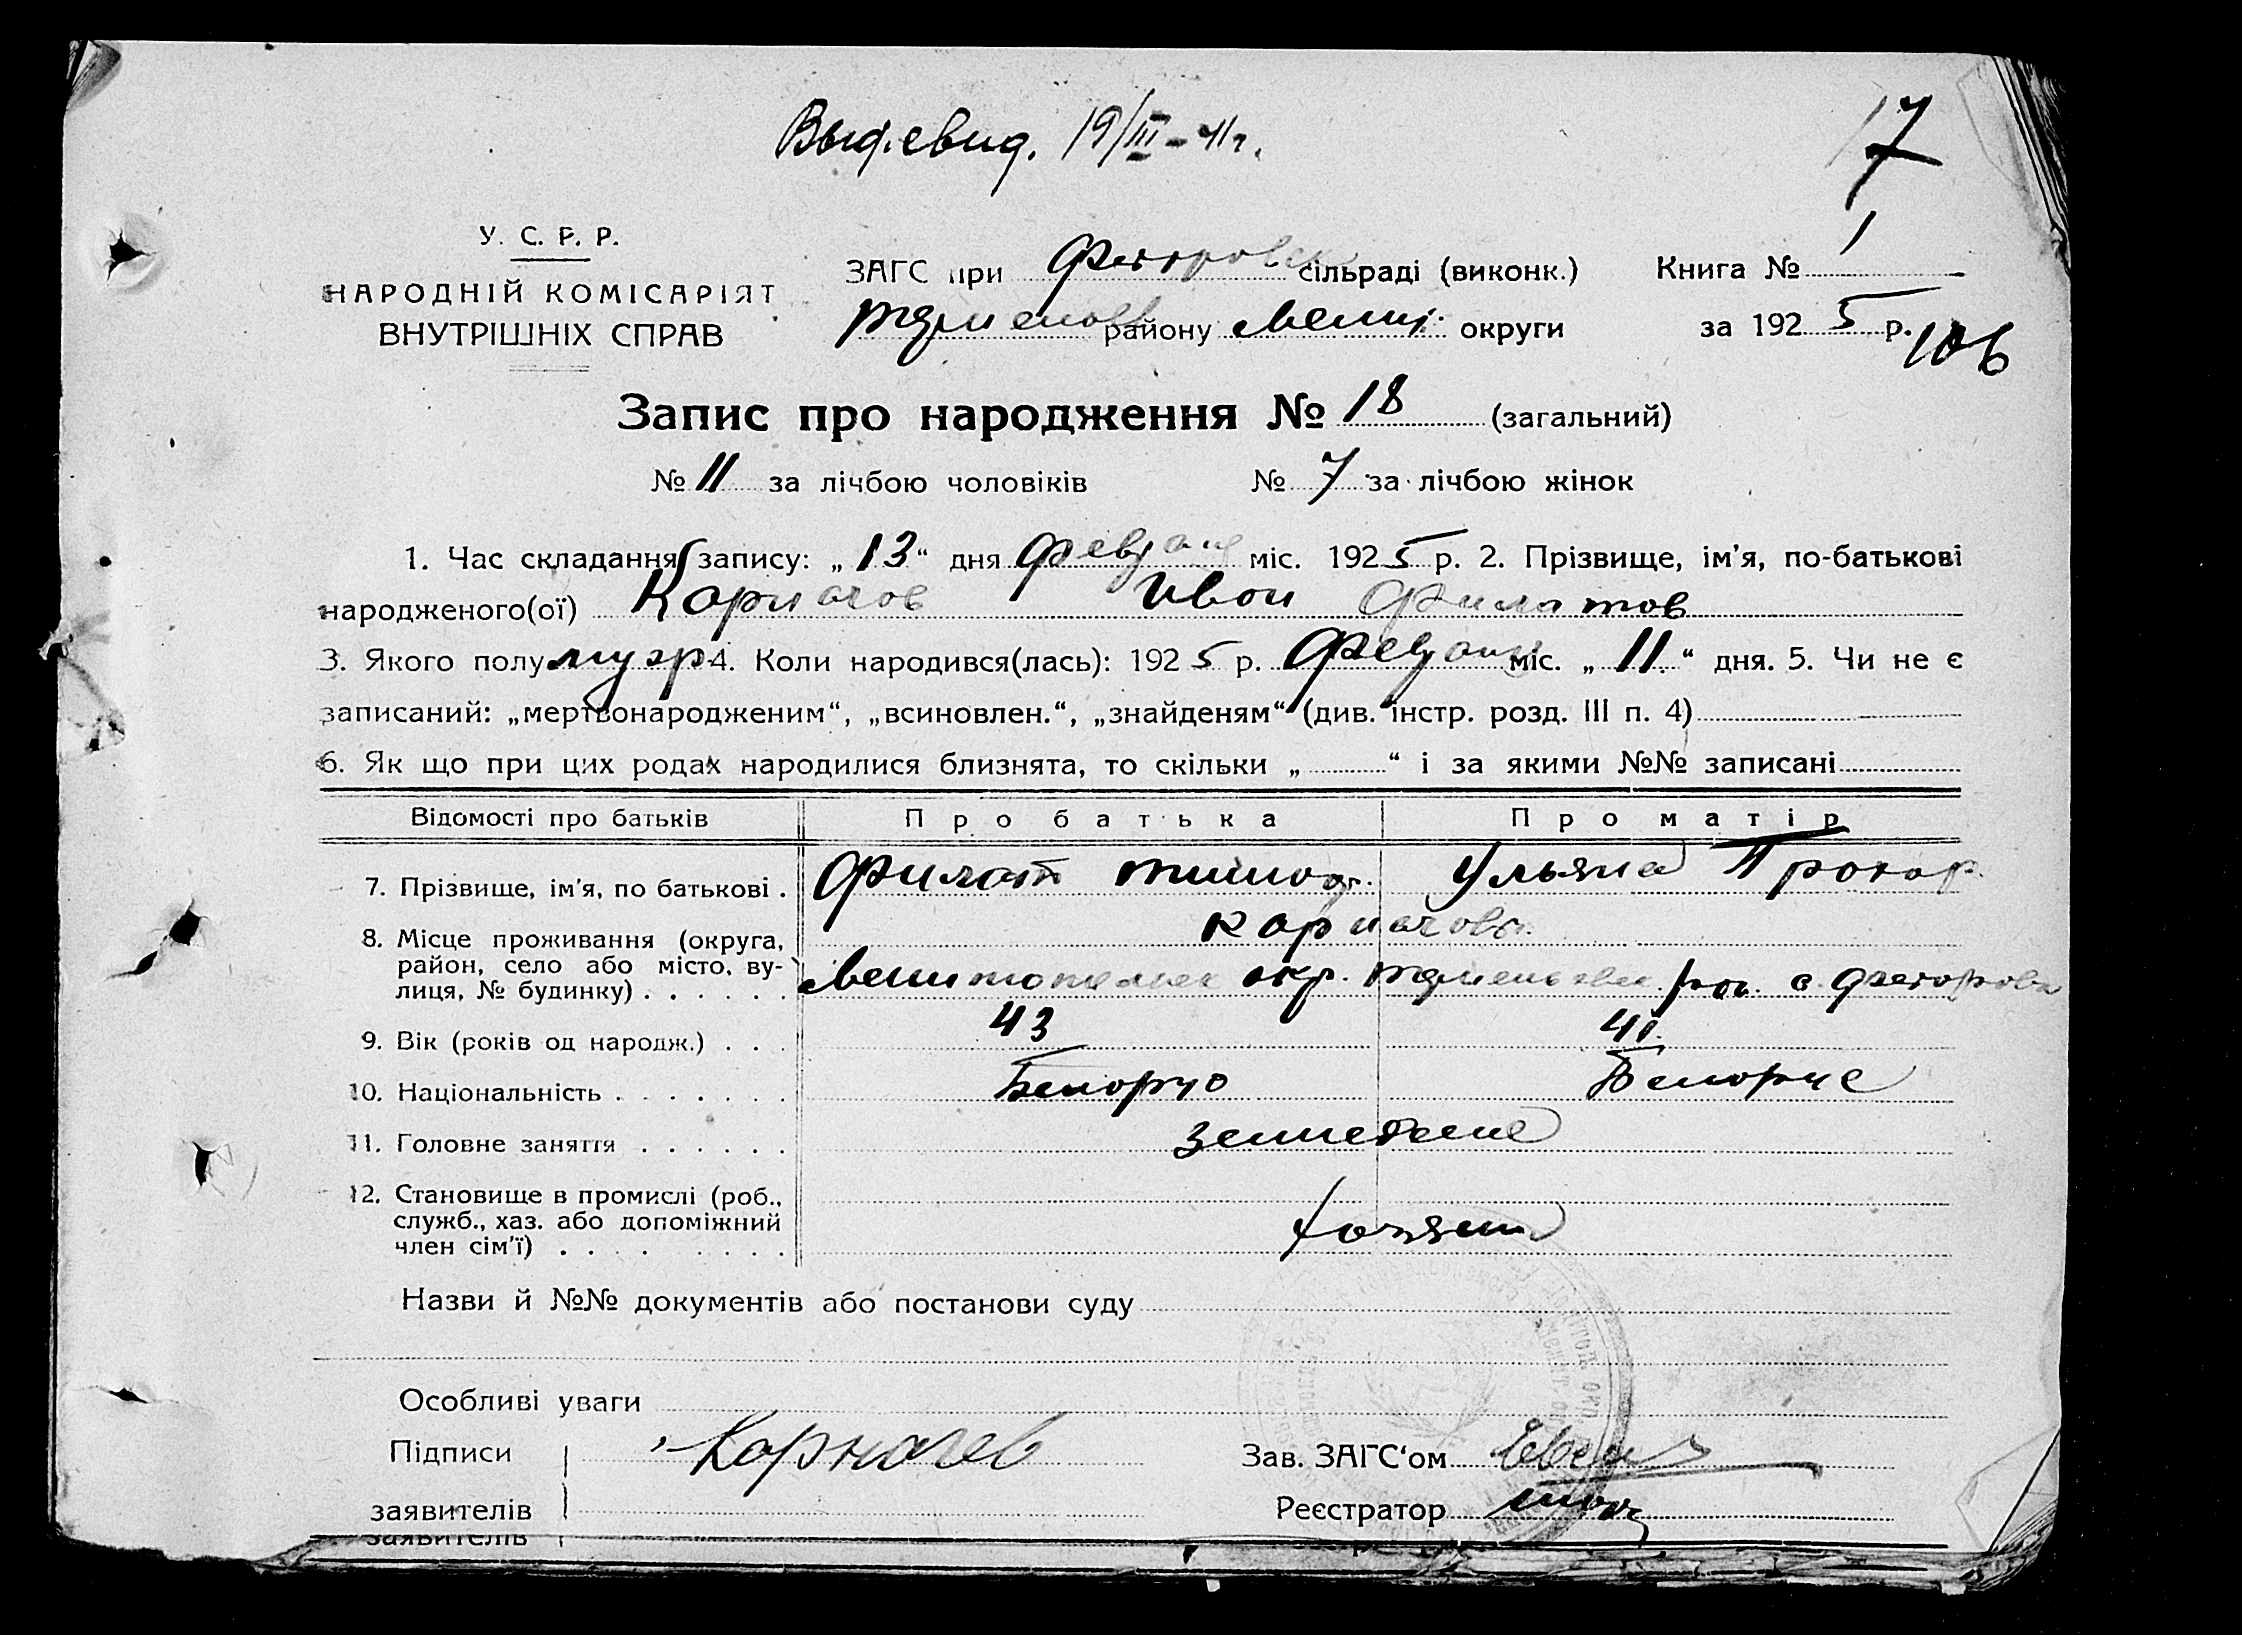 Выд. свид. 19/III-41г.
17
У. С. Р. Р.
НАРОДНІЙ КОМІСАРІЯТ
ВНУТРІШНІХ СПРАВ
ЗАГС при Федоровск сільраді (виконк.) Книга № 1
району Мелит. округи за 1925 р.
106
Запис про народження № 18 (загальний)
№ 11 за лічбою чоловіків № 7 за лічбою жінок
1. Час складання запису: „13“ дня февраля міс. 1925 р. 2. Прізвище, ім'я, по-батькові
народженого(ої) Карначов Иван Филатов
3. Якого полу 4. Коли народився(лась): 1925 р. февраля міс. „11“ дня. 5. Чи не є
записаний: „мертвонародженим“, „всиновлен.“, „знайденям“ (див. інстр. розд. III п. 4)
6. Як що при цих родах народилися близнята, то скільки „ “ і за якими №№ записані
Відомості про батьків Про батька Про матір
7. Прізвище, ім'я, по батькові . Филат Тимоф. Ульяна Прохор.
Карначовы
8. Місце проживання (округа,
район, село або місто, ву-
лиця, № будинку) . . . . . . Мелитопольск окр. рай. с. Федоровка
9. Вік (років од народж.) . . . 43 41.
10. Національність . . . . . . .
11. Головне заняття . . . . . .
12. Становище в промислі (роб.,
служб., хаз. або допоміжний
член сім'ї) . . . . . . . . хозяин
Назви й №№ документів або постанови суду
Особливі уваги
Підписи Карначев Зав. ЗАГС'ом
заявителів Реєстратор
заявителів